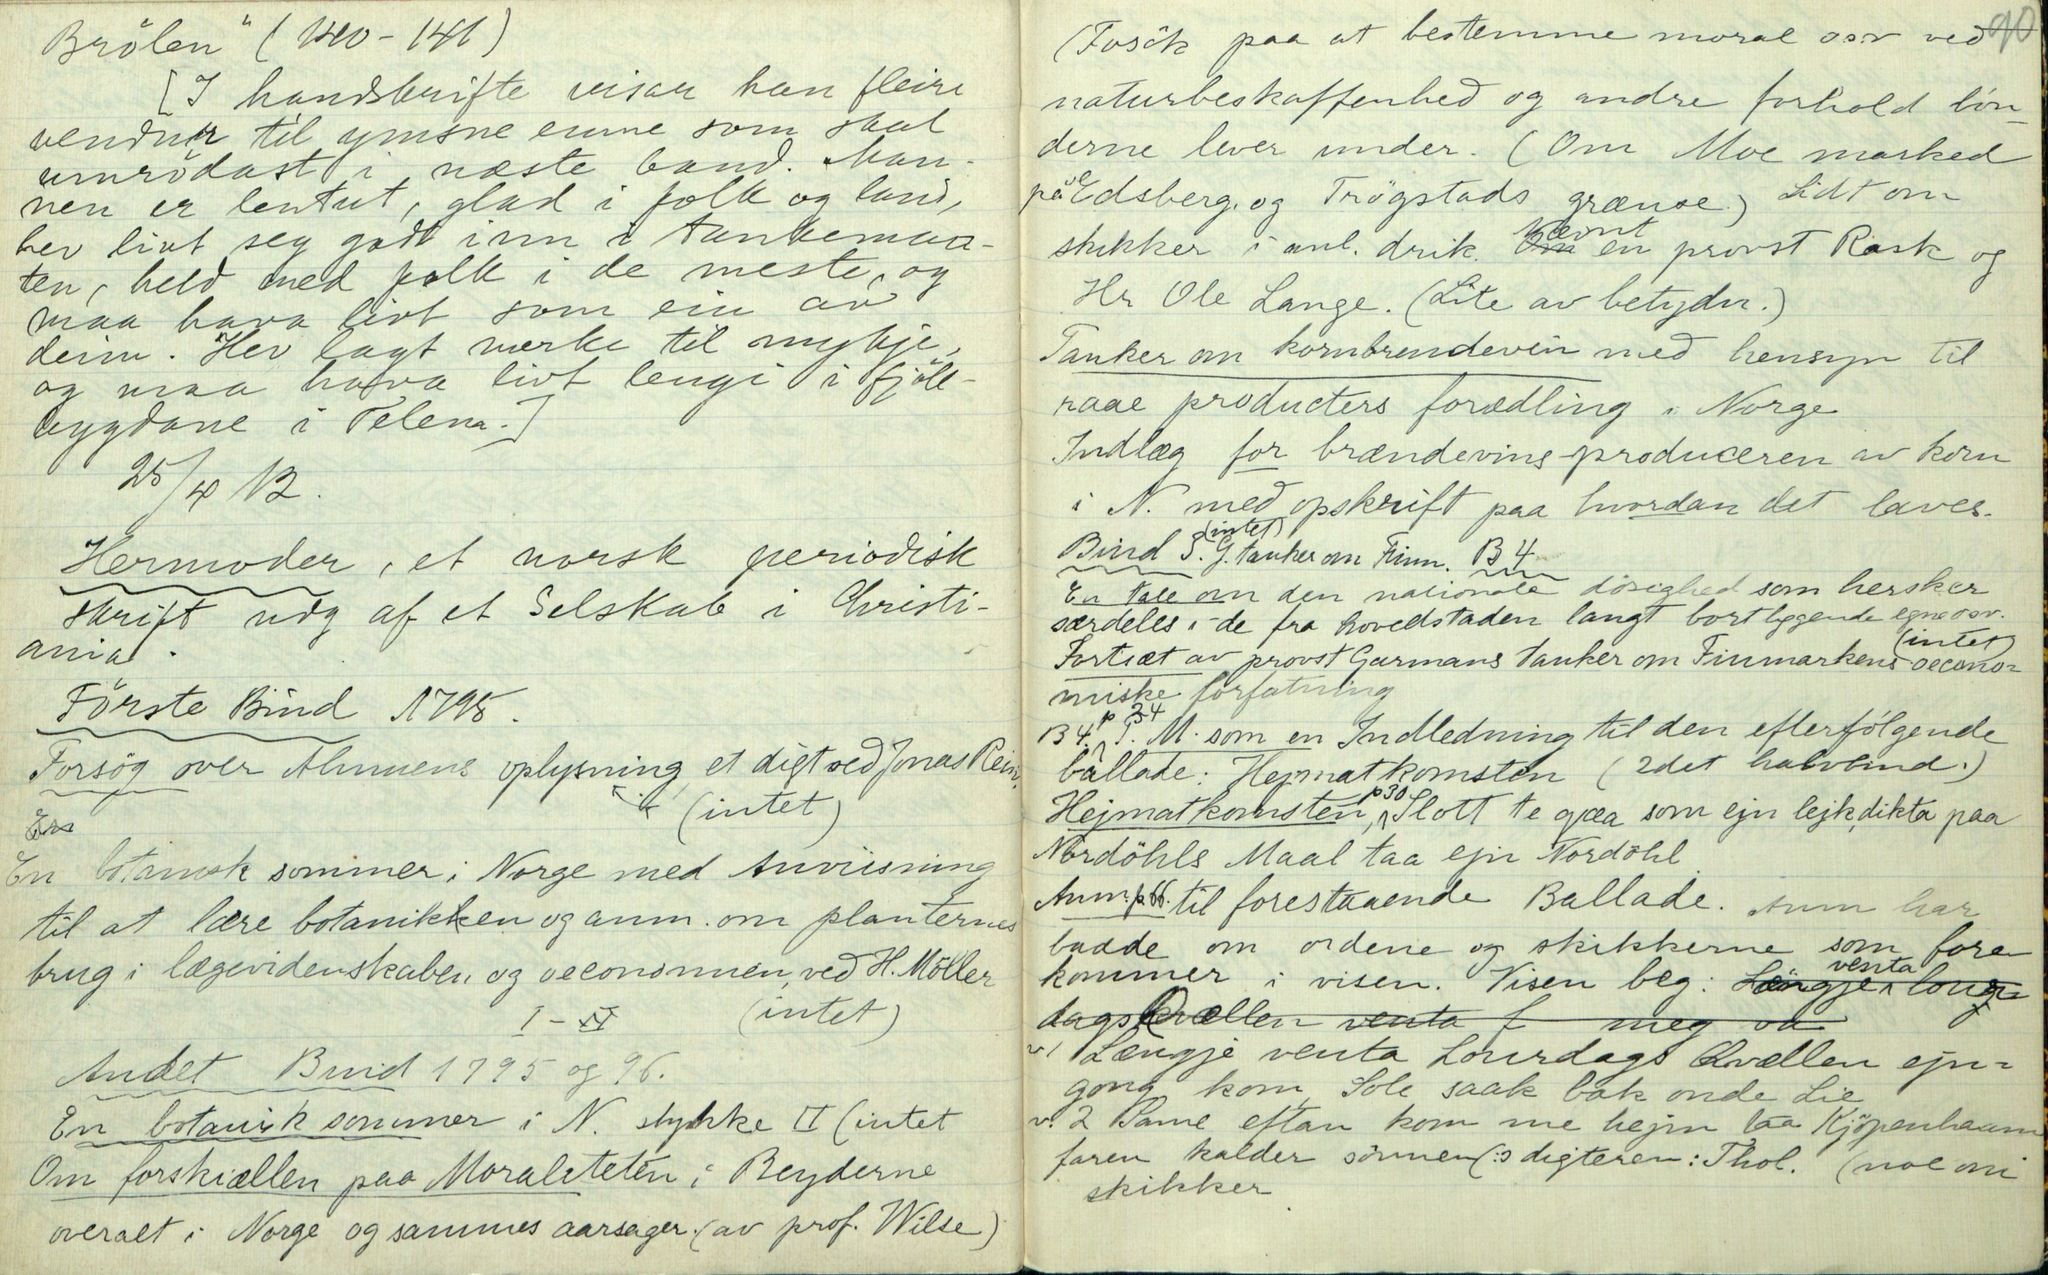 Brölen" (140-141)
[I handskrifte visar han fleire
vendur til ymsne emne som skal
umrödast i næste band. Man-
nen er lentut, glad i folk og land,
hev livt seg godt inn i tankemaa-
ten, held med folk i de meste, og
maa hava livt som ein av
deim. Hev lagt merke til mykje,
og maa hava livt lengi i fjöll-
bygdane i Telem.]
25/4 12.
Hermoder, et norsk periodisk
skrift udg af et Selskab i Christi-
ania.
Förste Bind 1795.
Forsög over Almuens oplysning, et digt ved Jonas Rein.
(intet)
En
En botanisk sommer i Norge med Anviisning
til at lære botanikken og anm. om planternes
brug i lægevidenskaben og oeconomien, ved H. Möller
I-II (intet)
Andet Bind 1795 og 96.
En botanisk sommer i N. stykke II (intet
Om forskiællen paa Moraliteten i Beyderne
overalt i Norge og sammes aarsager. (av prof. Wilse)
90
(Fosök paa at bestemme moral osv ved
naturbeskaffenhed og andre forhold bön-
derne lever under. (Om Moe marked
på Edsberg. og Trögstads grænse.) Lidt om
skikker i anl. drik. Om nævnt en provst Rask og
Hr Ole Lange. (Lite av betydn.)
Tanker om kornbrendevin med hensyn til
raae producters forædling i Norge
Indlæg for brændevins-produceren av korn
i N. med opskrift paa hvordan det laves.
Bind 3. (intet) G. tanker om Finm. B 4
En tale om den nationale dösighed som hersker
særdeles i de fra hovedstaden langt bortliggende egne osv.
(intet)
Fortsæt av provst Garmans tanker om Finmarkens oecono-
miske forfatning
B 4. p 24 T. M. som en Indledning til den efterfölgende
ballade: Hejmatkomsten (2det halvbind.)
Hejmatkomsten, p30 Slott te qvæa som ejn lejk, dikta paa
Nordöhls Maal taa ejn Nordöhl
Anm. p66. til forestaaende Ballade. Anm har
badde om ordene og skikkerne som fore-
kommer i visen. Visen beg: Længje venta loug
dags Qvællen venta f meg va
v 1 Længje venta Lourdags Qvællen ejn-
gong kom, Sole saak bak onde Lie
v. 2 Same eftan kom me hejm taa Kjöpenhaamn
faren kalder sönnen (:s digteren: Thol. (noe om
skikker